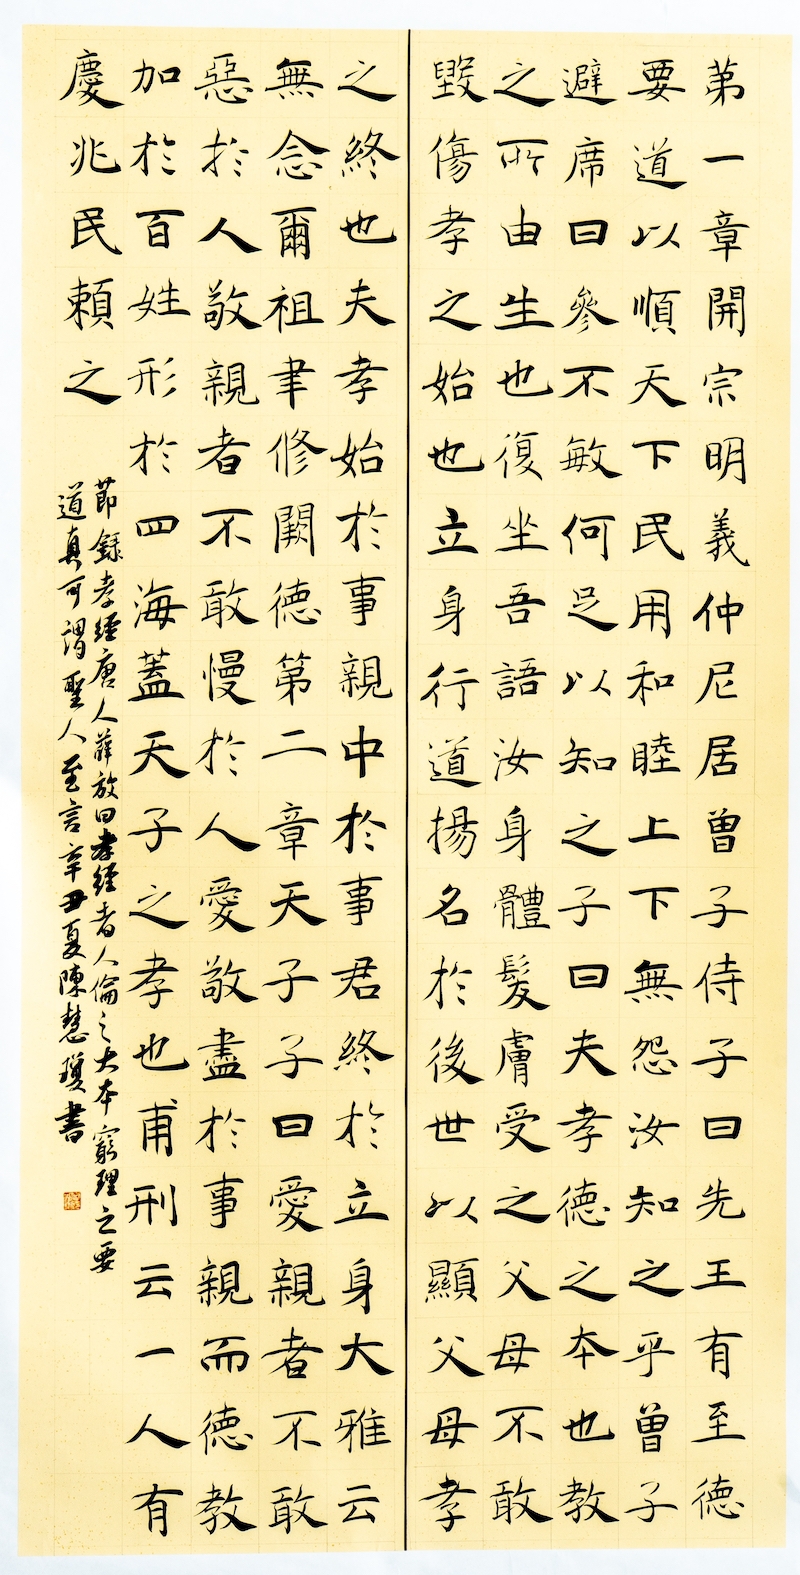 第一章開宗明義仲尼居曾子侍子曰先王有至德
要道以順天下民用和睦上下無怨汝知之乎曾子
避席曰參不敏何足以知之子曰夫孝德之本也教
之所由生也復坐吾語汝身體髮膚受之父母不敢
毀傷孝之始也立身行道揚名於後世以顯父母孝
之終也夫孝始於事親中於事君終於立身大雅云
無念爾祖聿修闕德第二章天子子曰愛親者不敢
惡於人敬親者不敢慢於人愛敬盡於事親而德教
加於百姓形於四海蓋天子之孝也甫刑云一人有
慶兆民賴之
節錄孝經唐人薛放曰孝經者人倫之大本窮理之要
道真可謂聖人至言辛丑夏陳慧瓊書